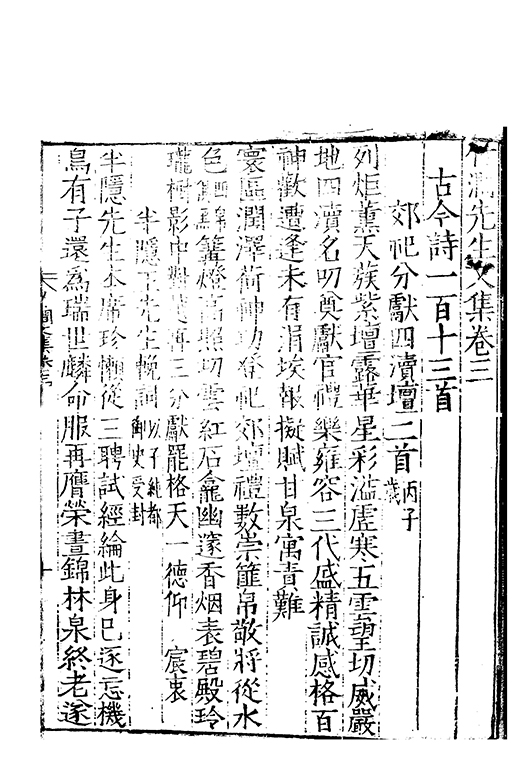 澗先生文集卷三
古今詩一百十三首
郊祀分獻四瀆壇二首丙子歲
列炬薰天簇紫壇露華星彩溢虛寒五雲望切威嚴
地四瀆名叨奠獻官禮樂雍容三代盛精誠感格百
神歡遭逢未有涓埃報擬賦甘泉寓責難
寰區潤澤荷神功登祀郊壇禮數崇篚帛敬將從水
色篝燈高照切雲紅石龕幽邃香烟表碧殿玲
瓏樹影中三分獻罷格天一德仰宸衷
半隱王先生輓詞以子純都御史受封
半隱先生本席珍懶從三聘試經綸此身已逐忘機
鳥有子還爲瑞世麟命服再膺榮晝錦林泉終老遂